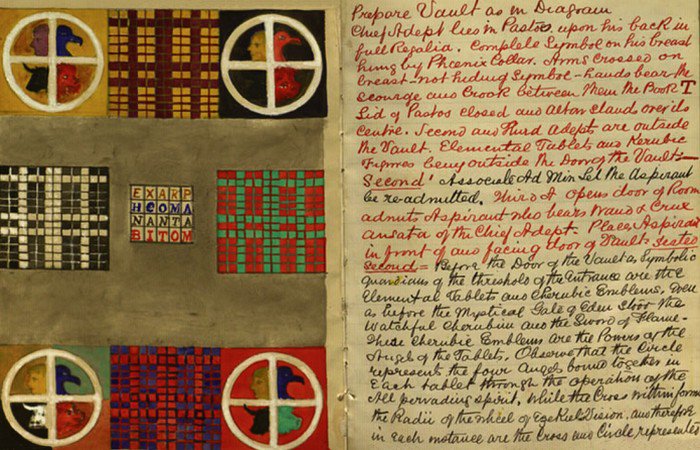 EXARP
HCOMA
NANTA
BITOM
Prepare Vault as in Diagram
Chief Adept lies in Pastos upon his back in
full Regalia. Complete Symbol on his breast
hung by Phoenix Collar. Arms Crossed on
breast not hiding Symbol – hands bear the
scourge and Crook between them the Book T
Lid of Pastos closed and Altar stands over its
Centre. Second and Third Adepts are outside
the Vault. Elemental Tablets and Kerubic
Figures being outside the Door of the Vault –
Second' Associate Ad Min See the Aspirant
be re-admitted. Third A opens door of Room
admits Aspirant who bears Wand & Crux
ansata of the Chief Adept – Places Aspirant
in front of and facing door of Vault – Seated
Second = Before the Door of the Vault as Symbolic
guardians of the threshold of the Entrance are the
Elemental Tablets and Cherubic Emblems, Even
as before the Mystical Gate of Eden stood the
Watchful Cherubim and the Sword of Flame –
These Cherubic Emblems are the Powers of the
Angels of the Tablets. Observe that the Circle
represents the four Angels bound together in
Each tablet through the operation of the
All pervading spirit, while the Cross within forms
the Radii of the wheel of Ezekiel's Vision, and therefore
in Each instance are the Cross and Circle represented